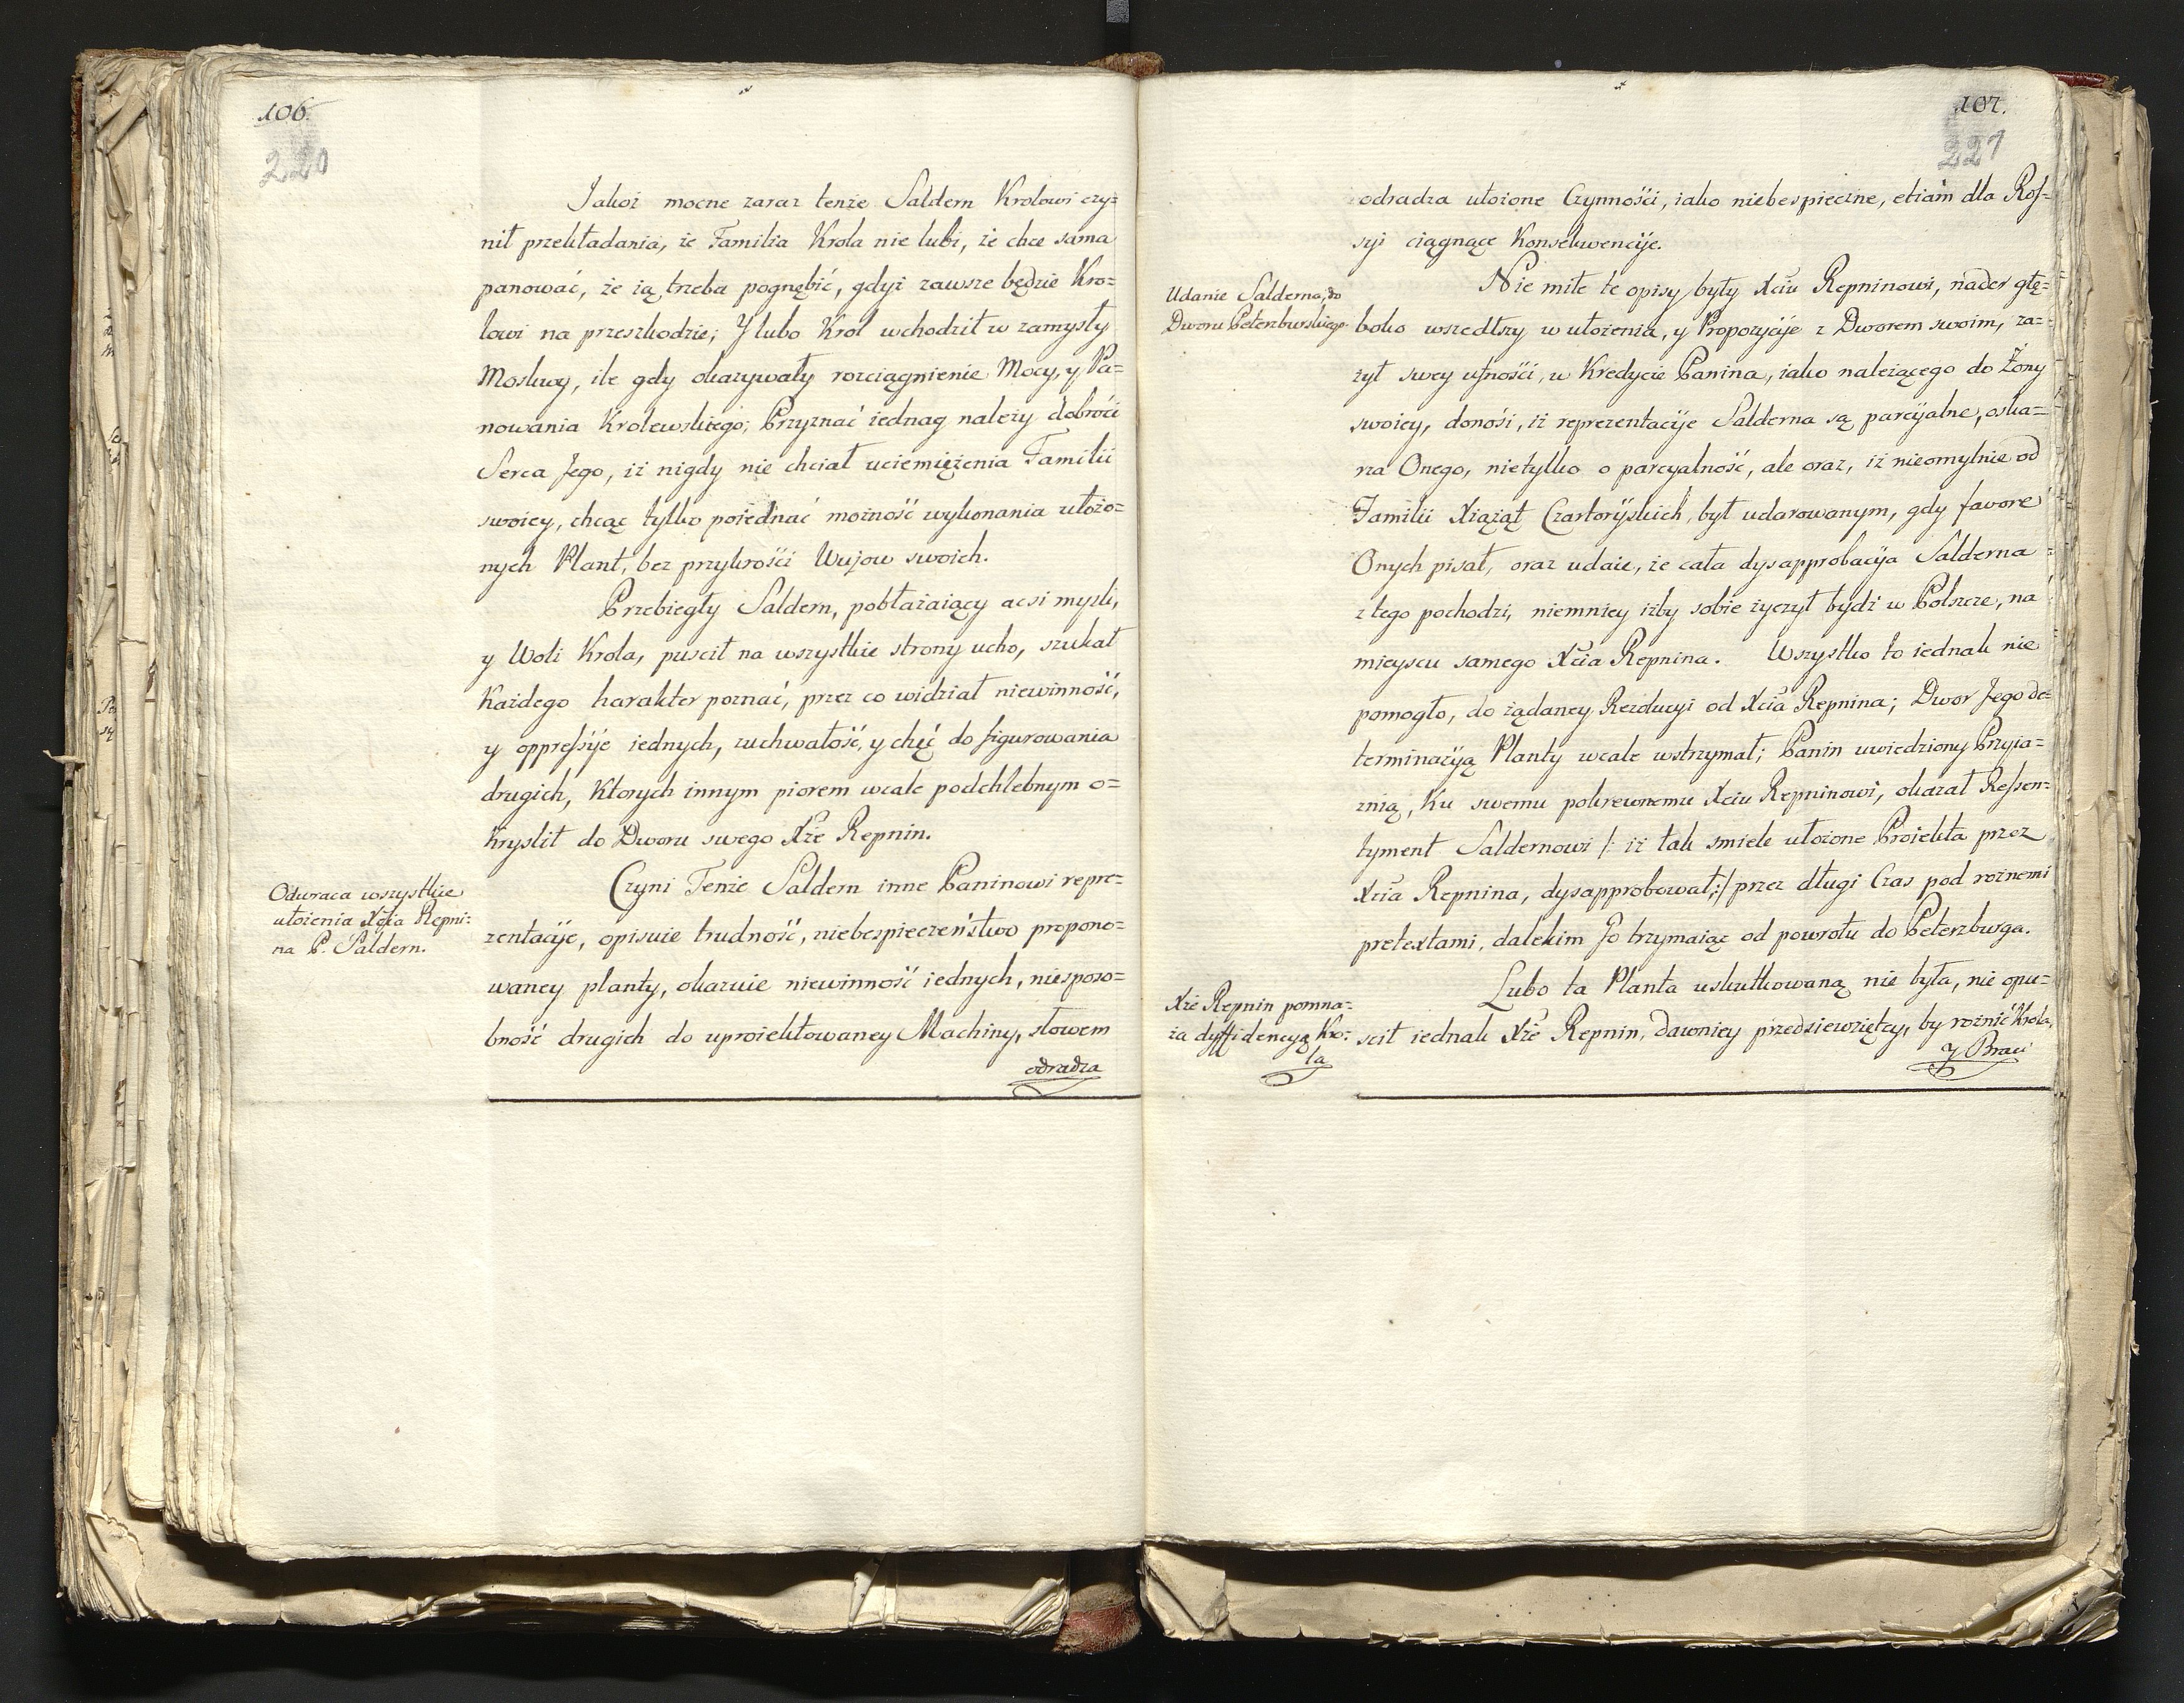 106.
220
Jakoż mocne zaraz tenże Saldern Krolowi czy=
nił przekładania, że Familia Krola nie lubi, że chce sama
panować, że ią trzeba pognębić, gdyż zawsze będzie Kro=
lowi na przeszkodzie; Y lubo Krol wchodził w zamysły
Moskwy, ile gdy okazywały rozciągnienie Mocy, y Pa=
nowania Krolewskiego; Przyznać iednag należy dobroci
Serca Jego, iż nigdy nie chciał uciemiężenia Familii
swoiey, chcąc tylko poiednać możność wykonania ułożo=
nych Plant, bez przykrości Wujow swoich.
Przebiegły Saldern, pobłażaiący acsi myśli,
y Woli Krola, puscił na wszystkie strony ucho, szukał
Każdego harakter poznać, przez co widział niewinność,
y oppressyie iednych, zuchwałość, y chęć do figurowania
drugich, Ktorych innym piorem wcale podchlebnym o=
Kryslił do Dworu swego Xże Repnin.
Odwraca wszystkie
ułożenia Xcia Repni=
na P. Saldern.
Czyni Tenże Saldern inne Paninowi repre=
zentacyie, opisuie trudność, niebespieczeństwo propono=
waney planty, okazuie niewinność iednych, niesposo=
bność drugich do uproiektowaney Machiny, słowem
odradza
107.
221
odradza ułożone Czynności, iako niebespieczne, etiam dla Ros=
syi ciągnące Konsekwencyie.
Udanie Salderna, do
Dworu Peterzburskiego
Nie miłe te opisy były Xciu Repninowi, nader głę=
boko wszedłszy w ułożenia, y Propozycyie z Dworem swoim, za=
żył swey ufności, w Kredycie Panina, iako należącego do Żony
swoiey, donosi, iż reprezentacyie Salderna są parcyialne, oska=
rza Onego, nietylko o parcyalność, ale oraz, iż nieomylnie od
Familii Xiążąt Czartoryskich, był udarowanym, gdy favore
Onych pisał, oraz udaie, że cała dysapprobacyia Salderna
z tego pochodzi, niemniey iżby sobie życzył bydź w Polszcze, na
mieyscu samego Xcia Repnina. Wszystko to iednak nie
pomogło, do żądaney Rezolucyi od Xcia Repnina; Dwor Jego de=
terminacyią Planty wcale wstrzymał; Panin uwiedziony Przyia=
znią, Ku swemu pokrewnemu Xciu Repninowi, okazał Ressen=
tyment Saldernowi /: iż tak smiele ułożone Proiekta przez
Xcia Repnina, dysapprobował, :/ przez długi Czas pod rożnemi
pretextami, dalekim Go trzymaiąc od powrotu do Peterzburga.
Xże Repnin pomna=
ża dyffidencyą Kro=
la
Lubo ta Planta uskutkowaną nie była, nie opu=
scił iednak Xże Repnin, dawniey przedsiewziętey, by rożnić Krola,
y Braci